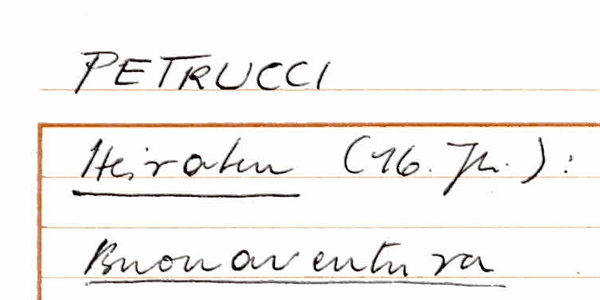 PETRUCCI
Heiraten (16. Jh.):
Buonaventura